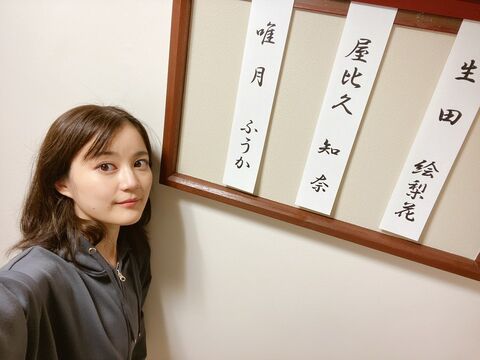 生田 絵梨花
屋比久 知奈
唯月 ふうか